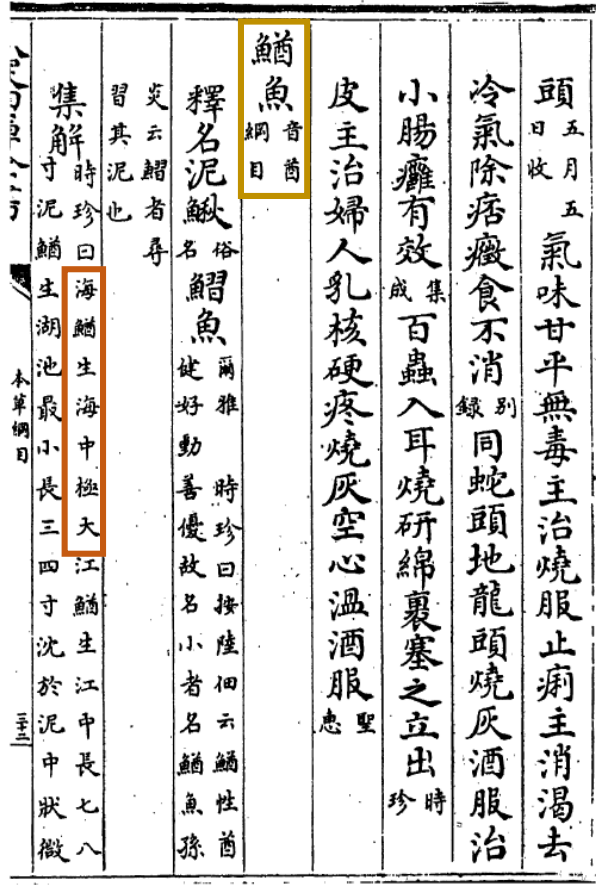 頭五月五日收氣味甘平無毒主治燒服止痢主消渴去
冷氣除痞癥食不消別錄同蛇頭地龍頭燒灰酒服治
小腸癰有效集成百蟲入耳燒研綿裹塞之立出時珍
皮主治婦人乳核硬疼燒灰空心溫酒服聖惠
鰌魚音酋綱目
釋名泥鰍俗名鰼魚爾雅 時珍曰按陸佃云鰌性酋健好動善優故名小者名鰌魚孫
炎云鰼者尋習其泥也
集解時珍曰海鰌生海中極大江鰌生江中長七八寸泥鰌生湖池最小長三四寸沈於泥中狀微
本草綱目
三十二